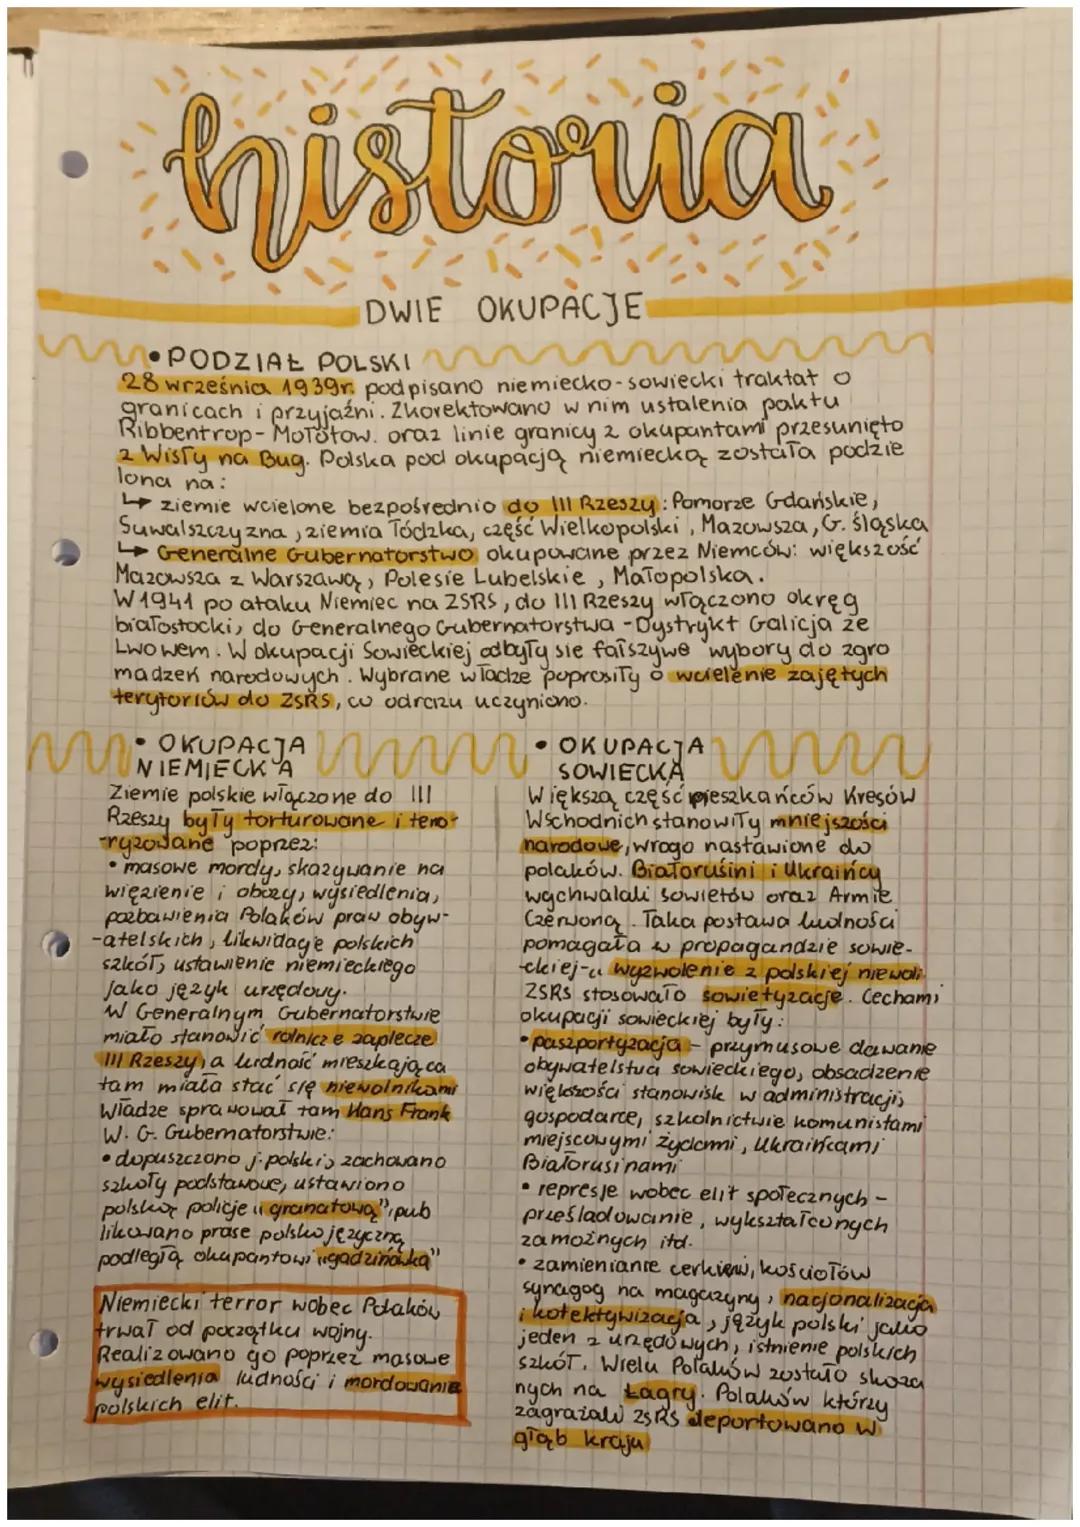 historia
DWIE OKUPACJE
• PODZIAŁ POLSKI
28 września 1939r. podpisano niemiecko-sowiecki traktat o
granicach i przyjaźni. Zkorektowano w nim ustalenia paktu
Ribbentrop-Mołotow. oraz linie granicy z okupantami przesunięto
z Wisły na Bug. Polska pod okupacją niemiecką została podzie
lona na:
↳ ziemie wcielone bezpośrednio do III Rzeszy: Pomorze Gdańskie,
Suwalszczyzna, ziemia łódzka, część Wielkopolski, Mazowsza, G. śląska
↳ Generalne Gubernatorstwo okupowane przez Niemców: większość
Mazowsza z Warszawą, Polesie Lubelskie, Małopolska.
W 1941 po ataku Niemiec na ZSRS, do III Rzeszy włączono okręg
białostocki, do Generalnego Gubernatorstwa - Dystrykt Galicja ze
Lwowem. W okupacji Sowieckiej odbyły sie fałszywe wybory do zgro
madzeń narodowych. Wybrane władze poprosiły o wcielenie zajętych
terytoriów do ZSRS, co odrazu uczyniono.
• OKUPACJA
NIEMIECKA
Ziemie polskie włączone do III
Rzeszy były torturowane i terro-
-ryzowane poprzez:
• masowe mordy, skazywanie na
więzienie i obozy, wysiedlenia,
pozbawienia Polaków praw obyw-
-atelskich, likwidacje polskich
szkół, ustawienie niemieckiego
jako język urzędowy.
W Generalnym Gubernatorstwie
miało stanowić rolnicze zaplecze
III Rzeszy, a ludność mieszkająca
tam miała stać się niewolnikami
Władze sprawował tam Hans Frank
W. G. Gubernatorstwie:
• dopuszczono j. polski, zachowano
szkoły podstawowe, ustawiono
polską policje „granatową”, pub
likowano prase polskojęzyczną
podległą okupantowi „gadzinówka”
Niemiecki terror wobec Polaków
trwał od początku wojny.
Realizowano go poprzez masowe
wysiedlenia ludności i mordowanie
polskich elit.
• OKUPACJA
SOWIECKA
Większą część mieszkańców Kresów
Wschodnich stanowiły mniejszości
narodowe, wrogo nastawione do
polaków. Białorusini i Ukraińcy
wychwalali sowietów oraz Armie
Czerwoną. Taka postawa ludności
pomagała w propagandzie sowie-
-ckiej-„ wyzwolenie z polskiej niewoli
ZSRS stosowało sowietyzacje. Cechami
okupacji sowieckiej były:
• paszportyzacja - przymusowe dawanie
obywatelstwa sowieckiego, obsadzenie
większości stanowisk w administracji,
gospodarce, szkolnictwie komunistami
miejscowymi żydami, Ukraińcami
Białorusinami
• represje wobec elit społecznych -
prześladowanie, wykształconych
zamożnych itd.
• zamienianie cerkiew, kościołów
synagog na magazyny, nacjonalizacja
i kolektywizacja, język polski jako
jeden z urzędowych, istnienie polskich
szkół. Wielu Polaków zostało skaza
nych na Łagry. Polaków którzy
zagrażali ZSRS deportowano w
głąb kraju